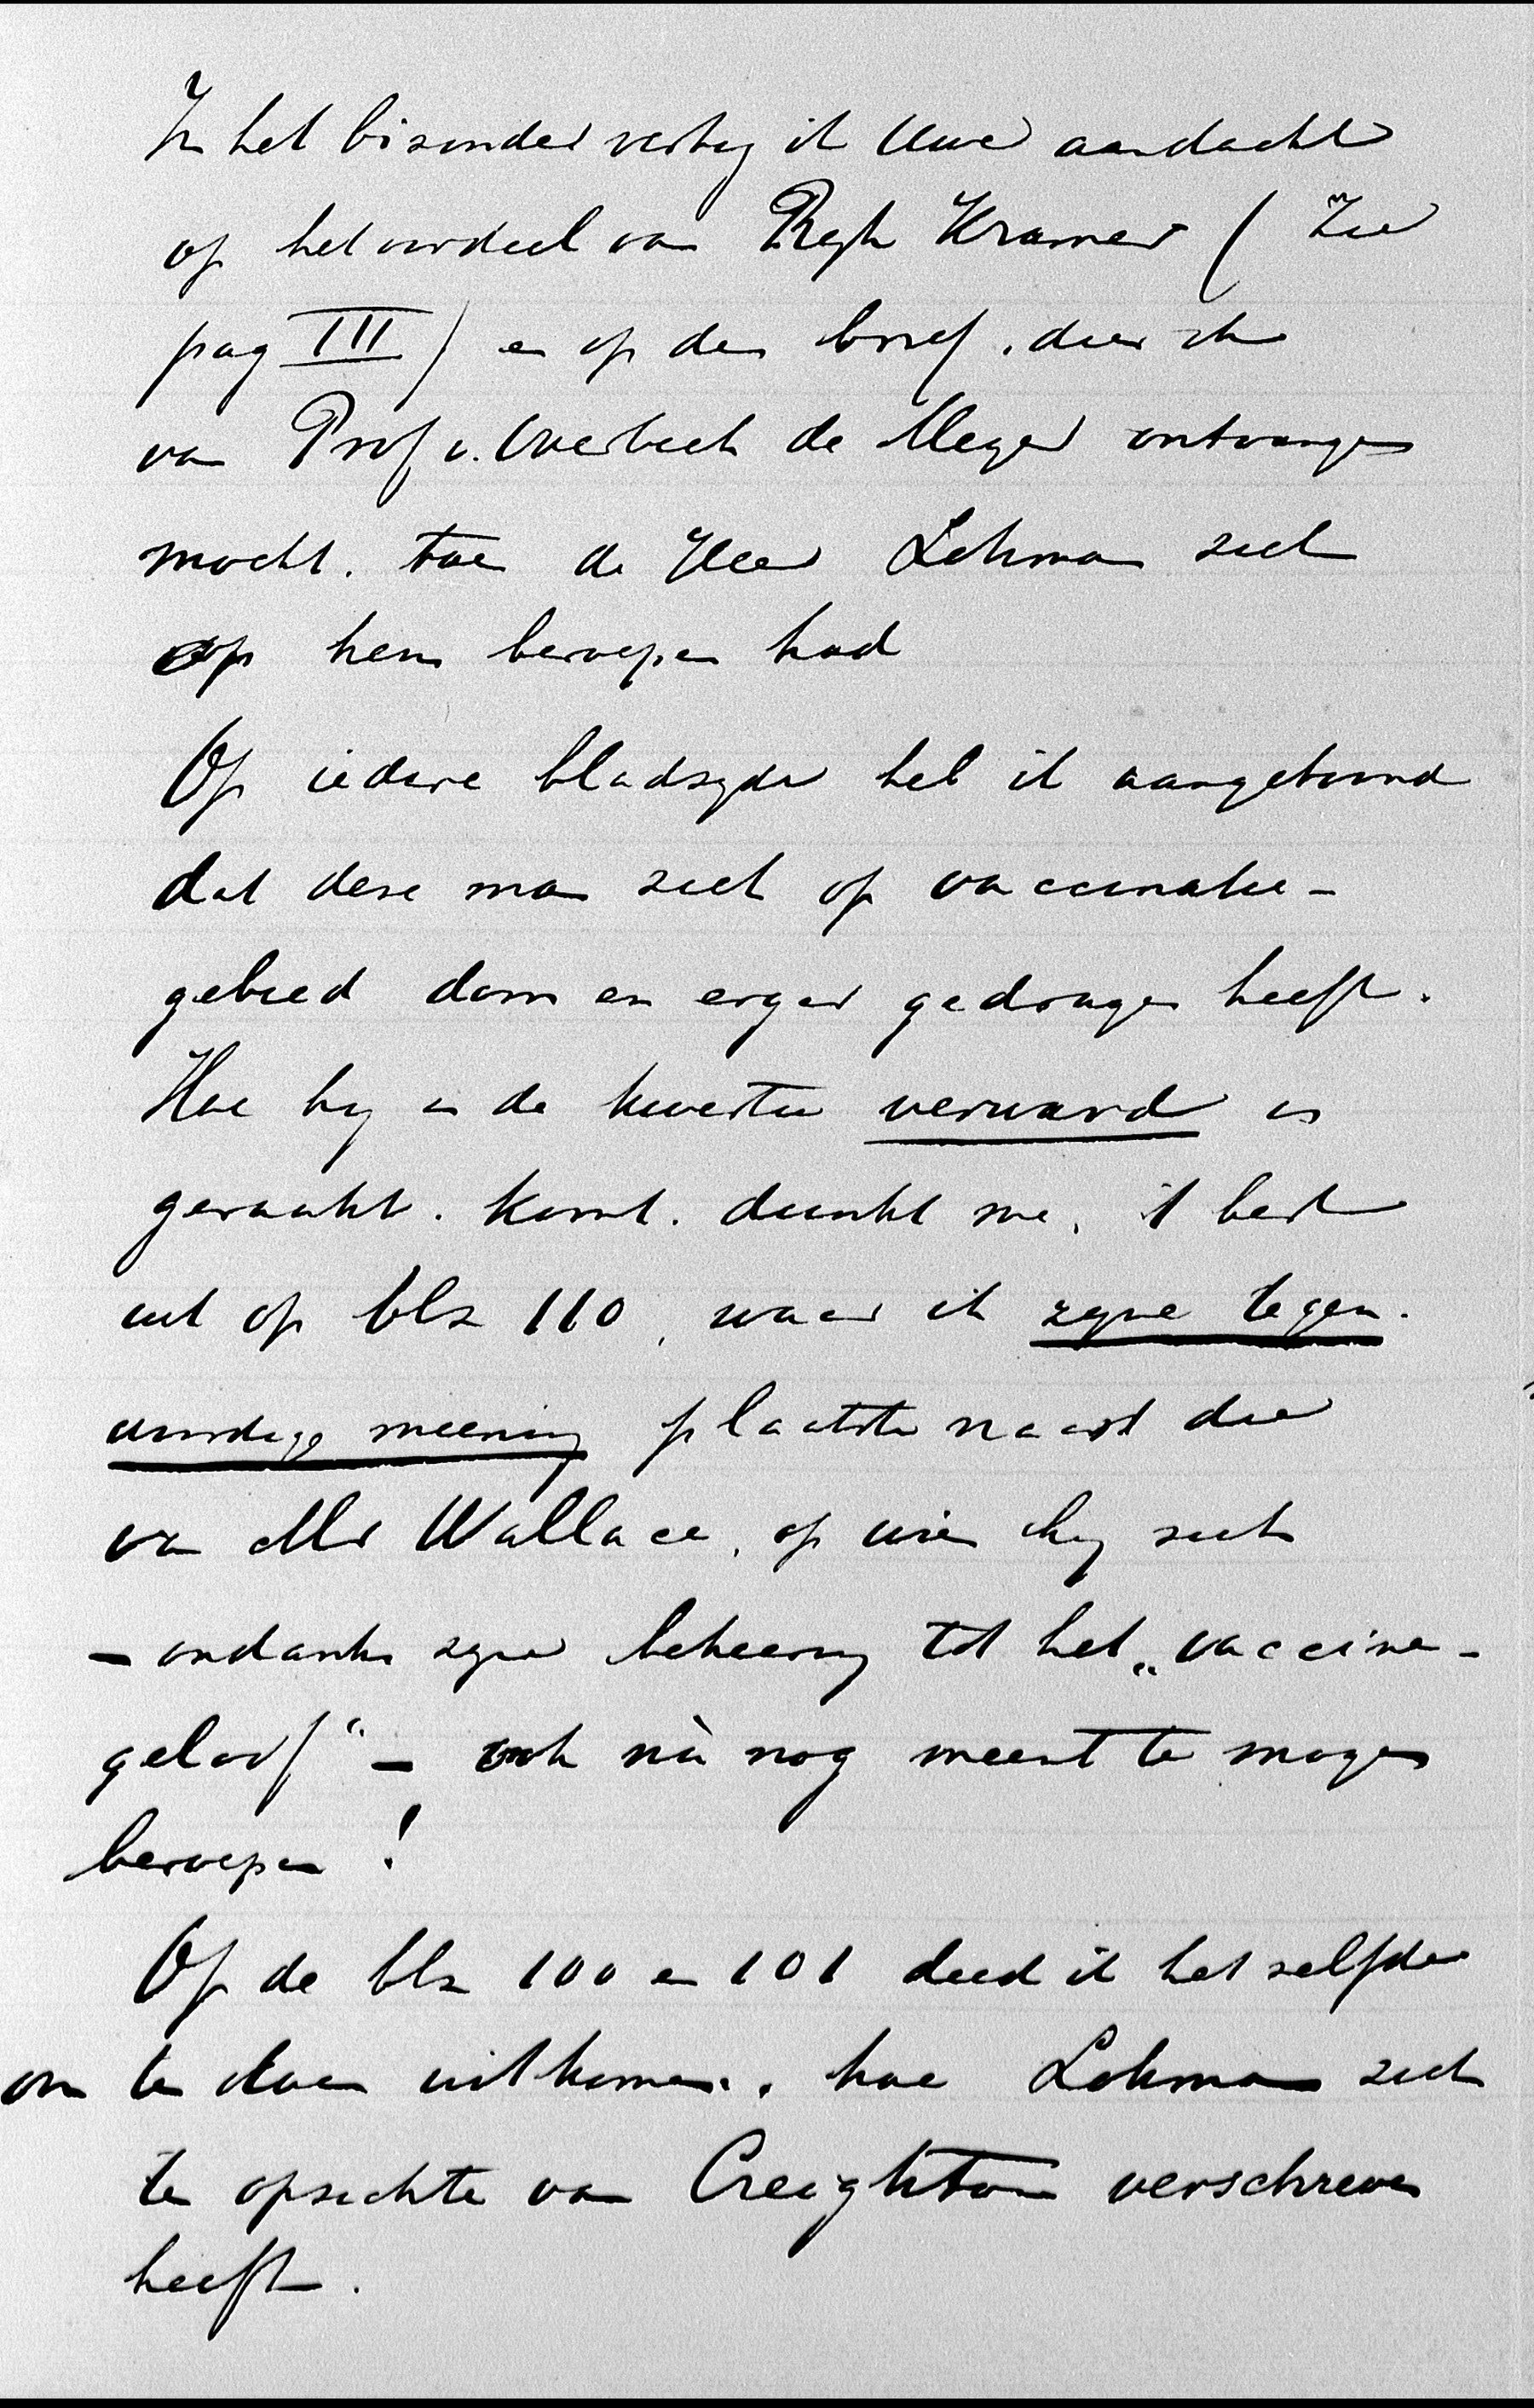 In het bizonder vestig ik Uwe aandacht
op het oordeel van Regh Kramer (Zie
pag III) en op den brief, dien ik
van Prof v. Overbeek de Meyer ontvangen
mocht, toen de Heer Lohman zich
op hem beroepen had
Op iedere bladzyde heb ik aangetoond
dat deze man zich op vaccinatie-
gebied dom en erger gedragen heeft.
Hoe hy in de kwestie verward is
geraakt, komt, dunkt me, 't best
uit op blz 110, waar ik zyne tegen-
woordige meening plaatste naast die
van Mr Wallace, op wien hy zich
- ondanks zyne bekeering tot het „vaccine-
geloof" - ook nù nog meent te mogen
beroepen!
Op de blz 100 en 101 deed ik hetzelfde
om te doen uitkomen, hoe Lohman zich
ten opzichte van Creighton verschreven
heeft.